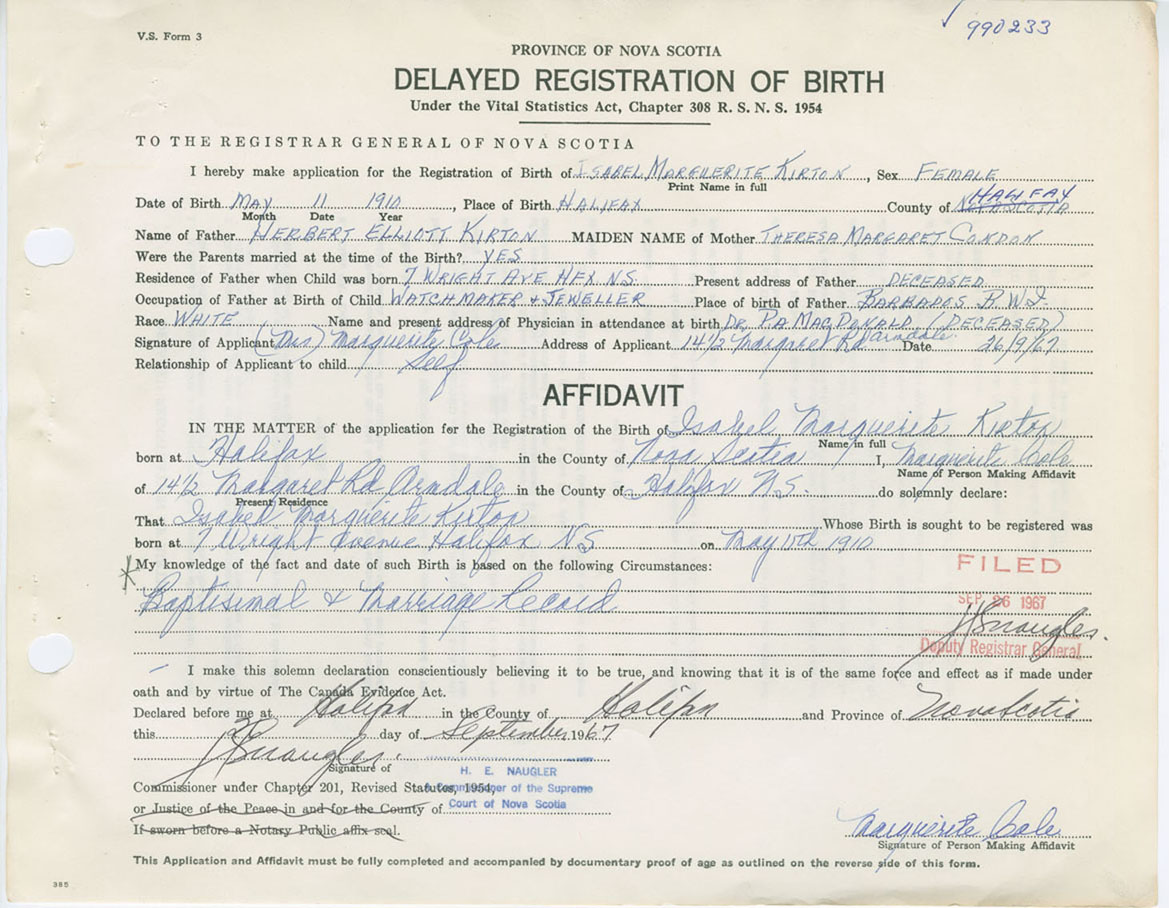 V.S. Form 3
990233
PROVINCE OF NOVA SCOTIA
DELAYED REGISTRATION OF BIRTH
Under the Vital Statistics Act, Chapter 308 R. S. N. S. 1954
TO THE REGISTRAR GENERAL OF NOVA SCOTIA
I hereby make application for the Registration of Birth of ISABEL MARGUERITE KIRTON, Sex FEMALE
Print Name in full
Date of Birth MAY 11 1910, Place of Birth HALIFAX County of NOVA SCOTIA HALIFAX
Month Date Year
Name of Father HERBERT ELLIOTT KIRTON MAIDEN NAME of Mother THERESA MARGARET CONDON
Were the Parents married at the time of the Birth? YES
Residence of Father when Child was born 7 WRIGHT AVE HFX N.S. Present address of Father DECEASED
Occupation of Father at Birth of Child WATCHMAKER & JEWELLER Place of birth of Father BARBADOS B.W.I.
Race WHITE Name and present address of Physician in attendance at birth DR. P.A. MACDONALD (DECEASED)
Signature of Applicant (Mrs) Marguerite Cole Address of Applicant 14½ Margaret Rd Armdale Date 26/9/67
Relationship of Applicant to child Self
AFFIDAVIT
IN THE MATTER of the application for the Registration of the Birth of Isabel Marguerite Kirton
Name in full
born at Halifax in the County of Nova Scotia I, Marguerite Cole
Name of Person Making Affidavit
of 14½ Margaret Rd Armdale in the County of Halifax N.S. do solemnly declare:
Present Residence
That Isabel Marguerite Kirton Whose Birth is sought to be registered was
born at 7 Wright Avenue Halifax N.S on May 11th 1910
My knowledge of the fact and date of such Birth is based on the following Circumstances:
FILED
Baptisimal & Marriage Record
SEP 26 1967
Deputy Registrar General
I make this solemn declaration conscientiously believing it to be true, and knowing that it is of the same force and effect as if made under
oath and by virtue of The Canada Evidence Act.
Declared before me at Halifax in the County of Halifax and Province of Nova Scotia
this 26 day of September 1967
Signature of
H. E. NAUGLER
Commissioner under Chapter 201, Revised Statutes, 1954,
A Commissioner of the Supreme
or Justice of the Peace in and for the County of
Court of Nova Scotia
If sworn before a Notary Public affix seal.
Marguerite Cole
Signature of Person Making Affidavit
This Application and Affidavit must be fully completed and accompanied by documentary proof of age as outlined on the reverse side of this form.
385